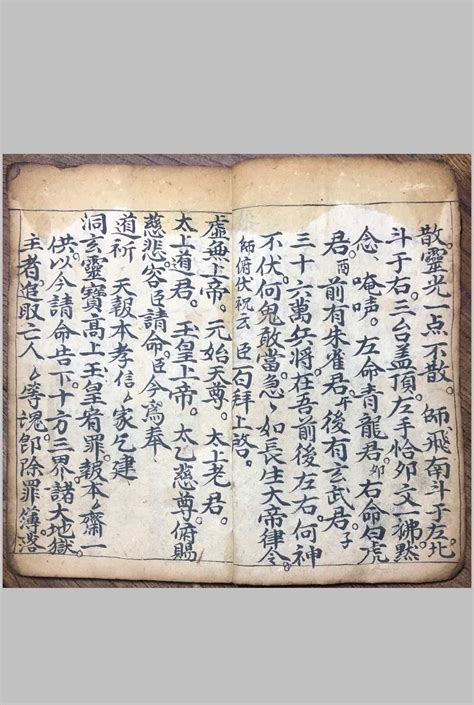 散。靈光一点不散。師飛南斗于左。北
斗于右。三台盖頂。左手恰卯文一拂。默
念唵吽。左命青龍君。卯右命白虎
君。酉前有朱雀君。午後有玄武君。子
三十六萬兵將在吾前後左右。何神
不伏。何鬼敢當。急〻如長生大帝律令。
師俯伏祝云臣 百拜上啟。
虛無上帝。元始天尊。太上老君。
太上道君。玉皇上帝。太乙慈尊。俯賜
慈悲。容臣請命。臣今爲奉
道祈 天報本孝信〻家乞建
洞玄靈寶高上玉皇宥罪報本〻齋一
供。以今請命告下十方三界。諸大地獄。
主者進取亡人〻等塊。即除罪簿。落